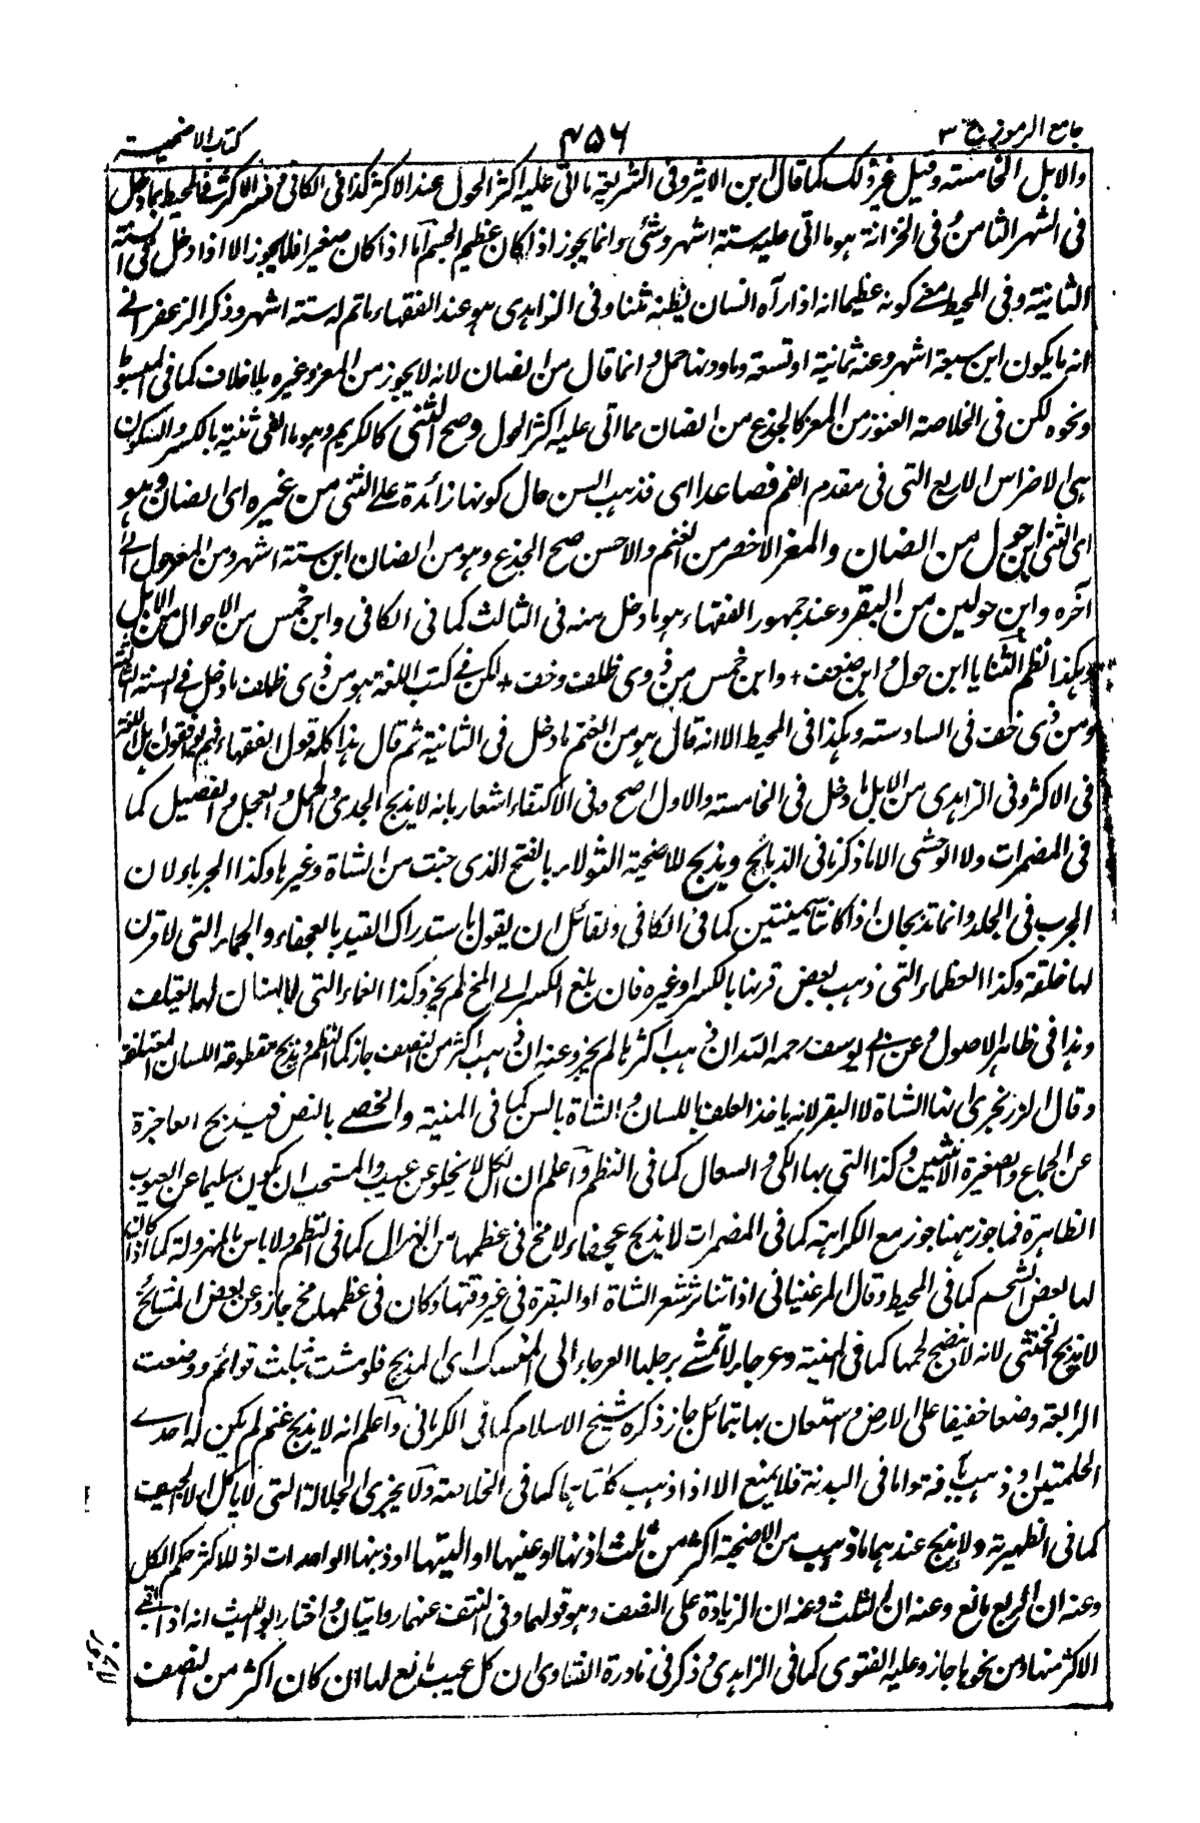 جامع الرموز ج ٣
٤٥٦
كتاب الاضحية
والابل الخامسة وقيل غير ذلك كما قال ابن الاثير وفى الشريعة ما اتى عليه اكثر الحول عند الاكثر كذا فى الكافى وفسر الاكثر فى المحيط بما دخل
فى الشهر الثامن وفى الخزانة هو ما اتى عليه ستة اشهر وشئ وانما يجوز اذا كان عظيم الجسم اما اذا كان صغيرا فلا يجوز الا اذا دخل فى السنة
الثانية وفى المحيط معنى كونه عظيما انه اذا رآه انسان يظنه ثنيا وفى الزاهدى هو عند الفقهاء ما تم له ستة اشهر وذكر الزعفرانى
انه ما يكون ابن سبعة اشهر وعنه ثمانية او تسعة وما دونها حمل وانما قال من الضان لانه لا يجوز من المعز وغيره بلا خلاف كما فى المبسوط
ونحوه لكن فى الخلاصة العنوز من المعز كالجذع من الضان مما اتى عليه اكثر الحول وصح الثنى كالكريم وهو ما القى ثنية بالكسر والسكون
هى الاضراس الاربع التى فى مقدم الفم فصاعدا اى فذهب السن حال كونها زائدة على الثنى من غيره اى الضان وهو
اى الثنى ابن حول من الضان والمعز الاخصر من الغنم والاحسن صح الجذع وهو من الضان ابن ستة اشهر ومن المعز حول الى
آخره وابن حولين من البقر وعند جمهور الفقهاء هو ما دخل منه فى الثالث كما فى الكافى وابن خمس من الاحوال من الابل
وهكذا نظم الثنايا ابن حول وابن ضعف + وابن خمس من ذوى ظلف وخف + لكن فى كتب اللغة هو من ذى ظلف ما دخل فى السنة الثالثة
ومن ذى خف فى السادسة وهكذا فى المحيط الا انه قال هو من الغنم ما دخل فى الثانية ثم قال هذا كله قول الفقهاء فهم يوافقون اهل اللغة
فى الاكثر وفى الزاهدى من الابل ما دخل فى الخامسة والاول اصح وفى الاكتفاء اشعار بانه لا يذبح الجدى والحمل والعجل والفصيل كما
فى المضمرات ولا الوحشى الا ما ذكرنا فى الذبائح ويذبح للاضحية الثولاء بالفتح الذى جنت من الشاة وغيرها وكذا الجرباء ولان
الجرب فى الجلد وانما تذبحان اذا كانتا سمينتين كما فى الكافى ولقائل ان يقول باستدراك القيد بالعجفاء والجماء التى لا قرن
لها خلقة وكذا العظماء التى ذهب بعض قرنها بالكسر او غيره فان بلغ الكسر الى المخ لم يجز وكذا التى لا اسنان لها يعتلف
وهذا فى ظاهر الاصول وعن ابى يوسف رحمه الله ان ذهب اكثرها لم يجز وعنه ان ذهب اكثر من النصف جاز كما فى النظم ويذبح مقطوعة اللسان المعتلفة
وقال انها الشاة لا البقر لانه ياخذ العلف باللسان والشاة بالسن كما فى المنية والخصى بالنص فيذبح العاجزة
عن الجماع وصغيرة الانثيين وكذا التى بها الكى والسعال كما فى النظم واعلم ان الكل لا يخلو عن عيب والمستحب ان يكون سليما عن العيوب
الظاهرة فما جوز ههنا جوز مع الكراهة كما فى المضمرات لا يذبح عجفاء لا مخ فى عظمها من الهزال كما فى النظم ولا باس بالمهزولة كما اذا كان
لها بعض الشحم كما فى المحيط وقال المرغينانى اذا تناثر شعر الشاة او البقرة فى غير وقتها وكان فى عظمها مخ جاز وعن بعض المشائخ
لا يذبح الخنثى لانه لا ينضج لحمها كما فى المنية وعرجاء لا تمشى برجلها العرجاء الى المنسك اى المذبح فلو مشت بثلث قوائم ووضعت
الرابعة وضعا خفيفا على الارض واستعان بها بتمائل جاز ذكره شيخ الاسلام كما فى الكرمانى واعلم انه لا يذبح غنم لم يكن له احدى
الحلمتين او ذهب بآفة واما فى البدنة فلا يمنع الا اذا ذهب كلتاهما كما فى الخلاصة ولا يجزى الجلالة التى لا ياكل الا الجيف
كما فى الظهيرية ولا يذبح عندهما ما ذهب من الاضحية اكثر من ثلث اذنها او عينها او اليتها او ذنبها الواحدات اذ للاكثر حكم الكل
وعنه ان الربع مانع وعنه ان الثلث وعنه ان الزيادة على النصف وهو قولهما وفى النتف عنهما روايتان واختار ابو الليث انه اذا بقى
الاكثر منها ومن نحوها جاز وعليه الفتوى كما فى الزاهدى وذكر فى نادرة الفتاوى ان كل عيب مانع لها ان كان اكثر من النصف